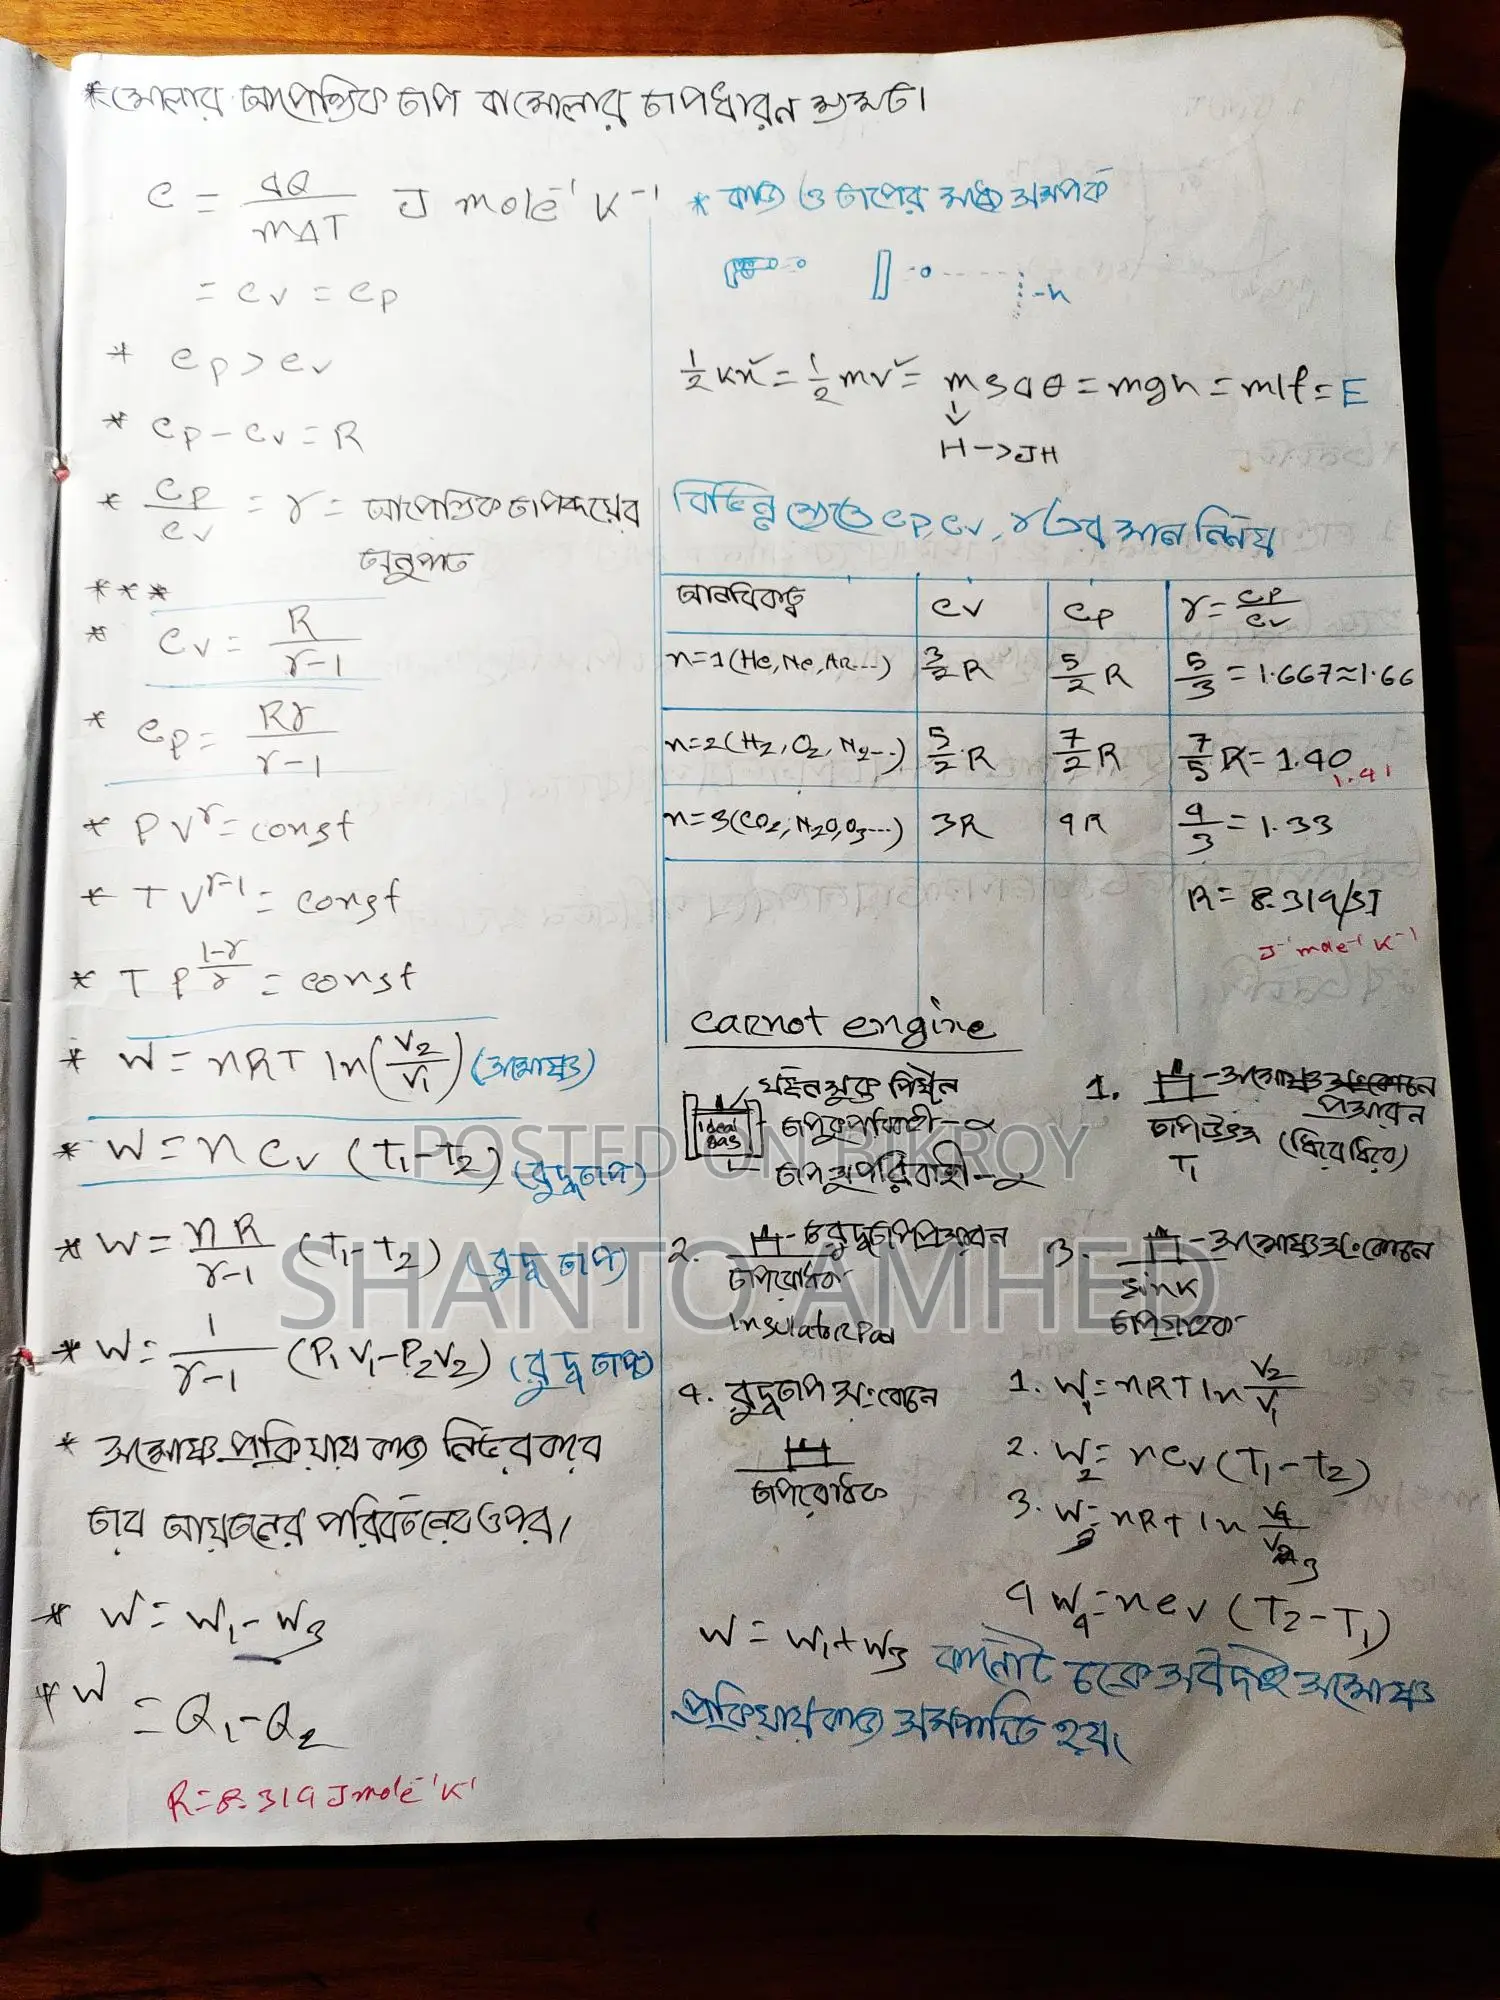 * মোলার আপেক্ষিক তাপ বা মোলার তাপধারন ক্ষমতা।
C = ΔQ / mΔT J mole⁻¹ K⁻¹
= Cv = Cp
* Cp > Cv
* Cp - Cv = R
* Cp / Cv = γ = আপেক্ষিক তাপদ্বয়ের
অনুপাত
* * *
* Cv = R / γ-1
* Cp = Rγ / γ-1
* PV^γ = const
* TV^γ-1 = const
* TP^(1-γ)/γ = const
* W = nRT ln(V₂/V₁) (সমোষ্ণ)
* W = nCv (T₁-T₂) (রুদ্ধতাপ)
* W = nR / γ-1 (T₁-T₂) (রুদ্ধ তাপ)
* W = 1 / γ-1 (P₁V₁-P₂V₂) (রুদ্ধ তাপ)
* সমোষ্ণ প্রক্রিয়ায় কাজ নির্ভর করে
তার আয়তনের পরিবর্তনের ওপর।
* W = W₁ - W₃
* W = Q₁ - Q₂
R = 8.314 J mole⁻¹ K⁻¹
* কাজ ও তাপের মধ্যে সম্পর্ক
-h
½ Kx² = ½ mv² = msΔθ = mgh = mlf = E
↓
H -> JH
বিভিন্ন ক্ষেত্রে Cp, Cv, γ এর মান নির্নয়
আনবিকত্ব Cv Cp γ = Cp/Cv
n=1 (He, Ne, Ar...) 3/2 R 5/2 R 5/3 = 1.667≈1.66
n=2 (H₂, O₂, N₂...) 5/2 R 7/2 R 7/5 R = 1.40
1.41
n=3 (CO₂, N₂O, O₃...) 3R 4R 4/3 = 1.33
R = 8.314/SI
J⁻¹ mole⁻¹ K⁻¹
Carnot engine
ideal gas
ঘর্ষনমুক্ত পিষ্টন
তাপ কুপরিবাহী - ∝
তাপ সুপরিবাহী - ১
1. সমোষ্ণ সংকোচন
প্রসারন
তাপ উৎস (ধিরে ধিরে)
T₁
2. রুদ্ধতাপ প্রসারন
তাপরোধক
Insulator Pad
3. সমোষ্ণ সংকোচন
sink
তাপগ্রাহক
4. রুদ্ধতাপ সংকোচন
তাপরোধক
1. W₁ = nRT ln V₂/V₁
2. W₂ = nCv (T₁-T₂)
3. W₃ = nRT ln V₄/V₃
4 W₄ = nCv (T₂-T₁)
W = W₁ + W₃ কার্নোট চক্রে সর্বদাই সমোষ্ণ
প্রক্রিয়ায় কাজ সম্পাদিত হয়।
POSTED ON BIKROY
SHANTO AMHED